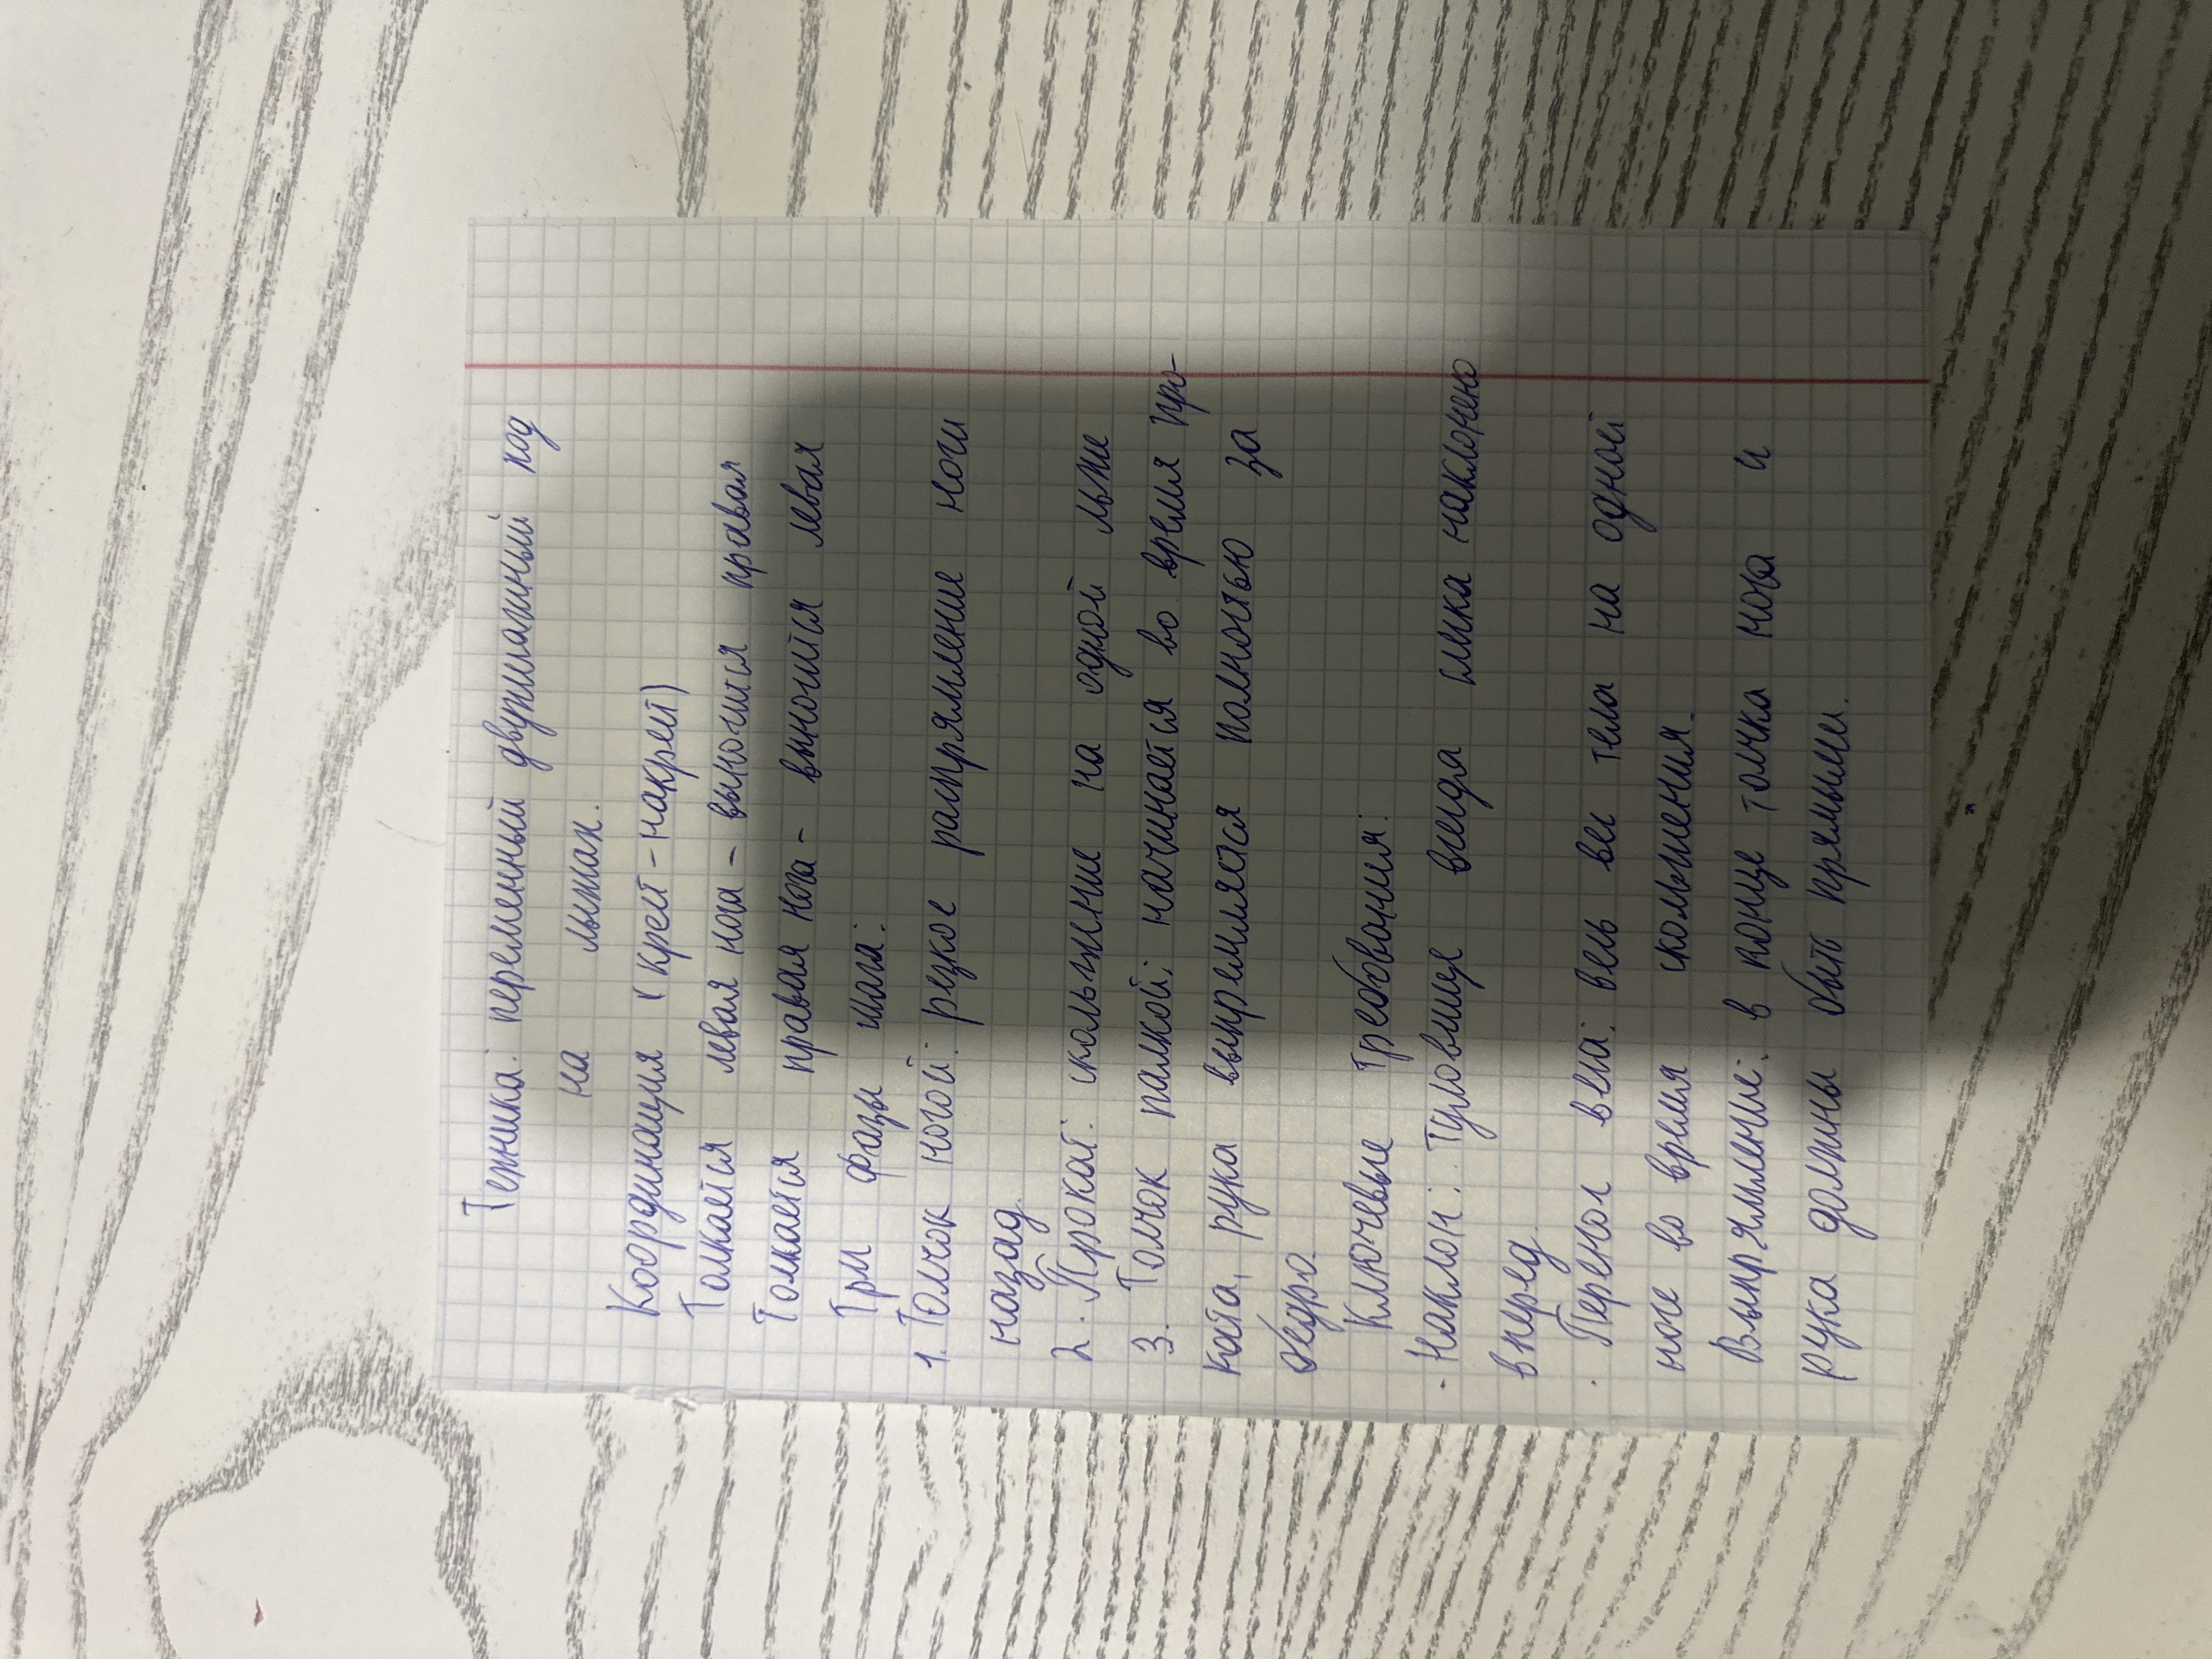 Техника: переменный двухшажный ход
на лыжах.
Координация (крест-накрест)
Толкается левая нога - выносится правая
Толкается правая нога - выносится левая
Три фазы шага:
1. Толчок ногой: резкое распрямление ноги
назад.
2. Прокат: скольжение на одной лыже
3. Толчок палкой: начинается во время про-
ката, рука выпремляется полностью за
бедро.
Ключевые требования:
- Наклон: Туловище всегда слика наклонено
вперед.
. Перенос веса: весь вес тела на одной
ноге во время скольжения.
Выпрямление: в конце толчка нога и
рука должны быть прямыми.